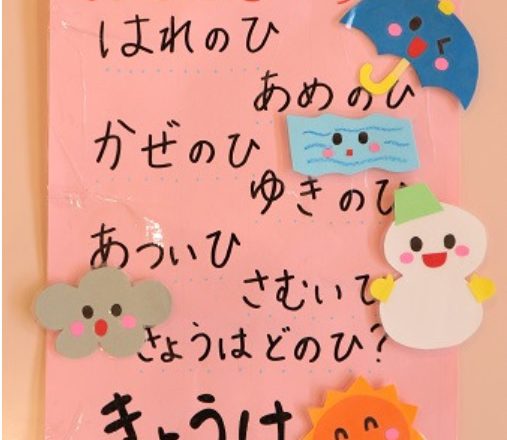 はれのひ
あめのひ
かぜのひ
ゆきのひ
あついひ
さむいひ
きょうはどのひ?
きょうは